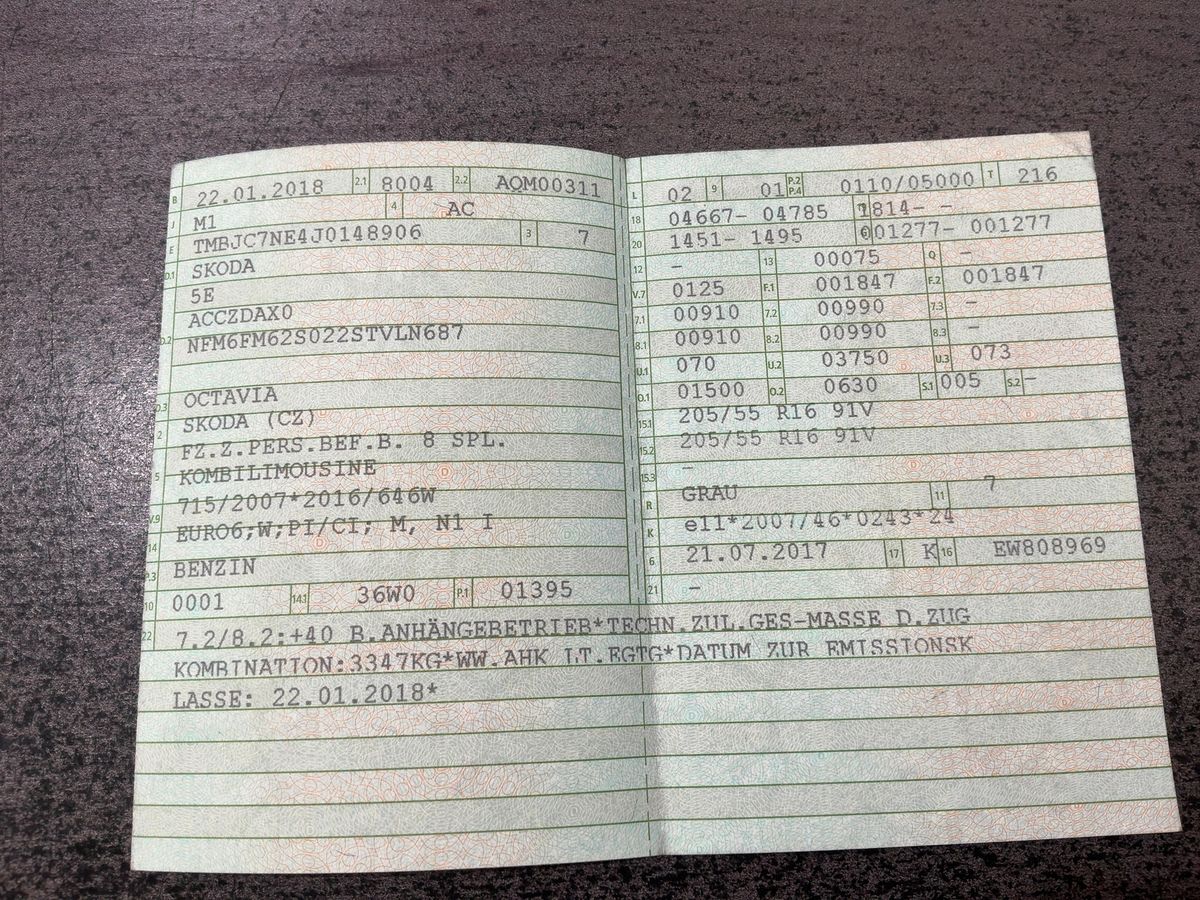 B 22.01.2018 2.1 8004 2.2 AQM00311
J M1 4 AC
E TMBJC7NE4J0148906 3 7
D.1 SKODA
5E
ACCZDAX0
D.2 NFM6FM62S022STVLN687
D.3 OCTAVIA
2 SKODA (CZ)
FZ.Z.PERS.BEF.B. 8 SPL.
5 KOMBILIMOUSINE
V.9 715/2007*2016/646W
14 EURO6;W;PI/CI; M, N1 I
P.3 BENZIN
10 0001 14.1 36W0 P.1 01395
L 02 9 01 P.2 P.4 0110/05000 T 216
18 04667- 04785 1814- -
20 1451- 1495 G 001277- 001277
12 - 13 00075 Q -
V.7 0125 F.1 001847 F.2 001847
7.1 00910 7.2 00990 7.3 -
8.1 00910 8.2 00990 8.3 -
U.1 070 U.2 03750 U.3 073
O.1 01500 O.2 0630 S.1 005 S.2 -
15.1 205/55 R16 91V
15.2 205/55 R16 91V
15.3 -
R GRAU 11 7
K e11*2007/46*0243*24
6 21.07.2017 17 K 16 EW808969
21 -
22 7.2/8.2:+40 B.ANHÄNGEBETRIEB*TECHN.ZUL.GES-MASSE D.ZUG
KOMBINATION:3347KG*WW.AHK LT.EGTG*DATUM ZUR EMISSIONSK
LASSE: 22.01.2018*